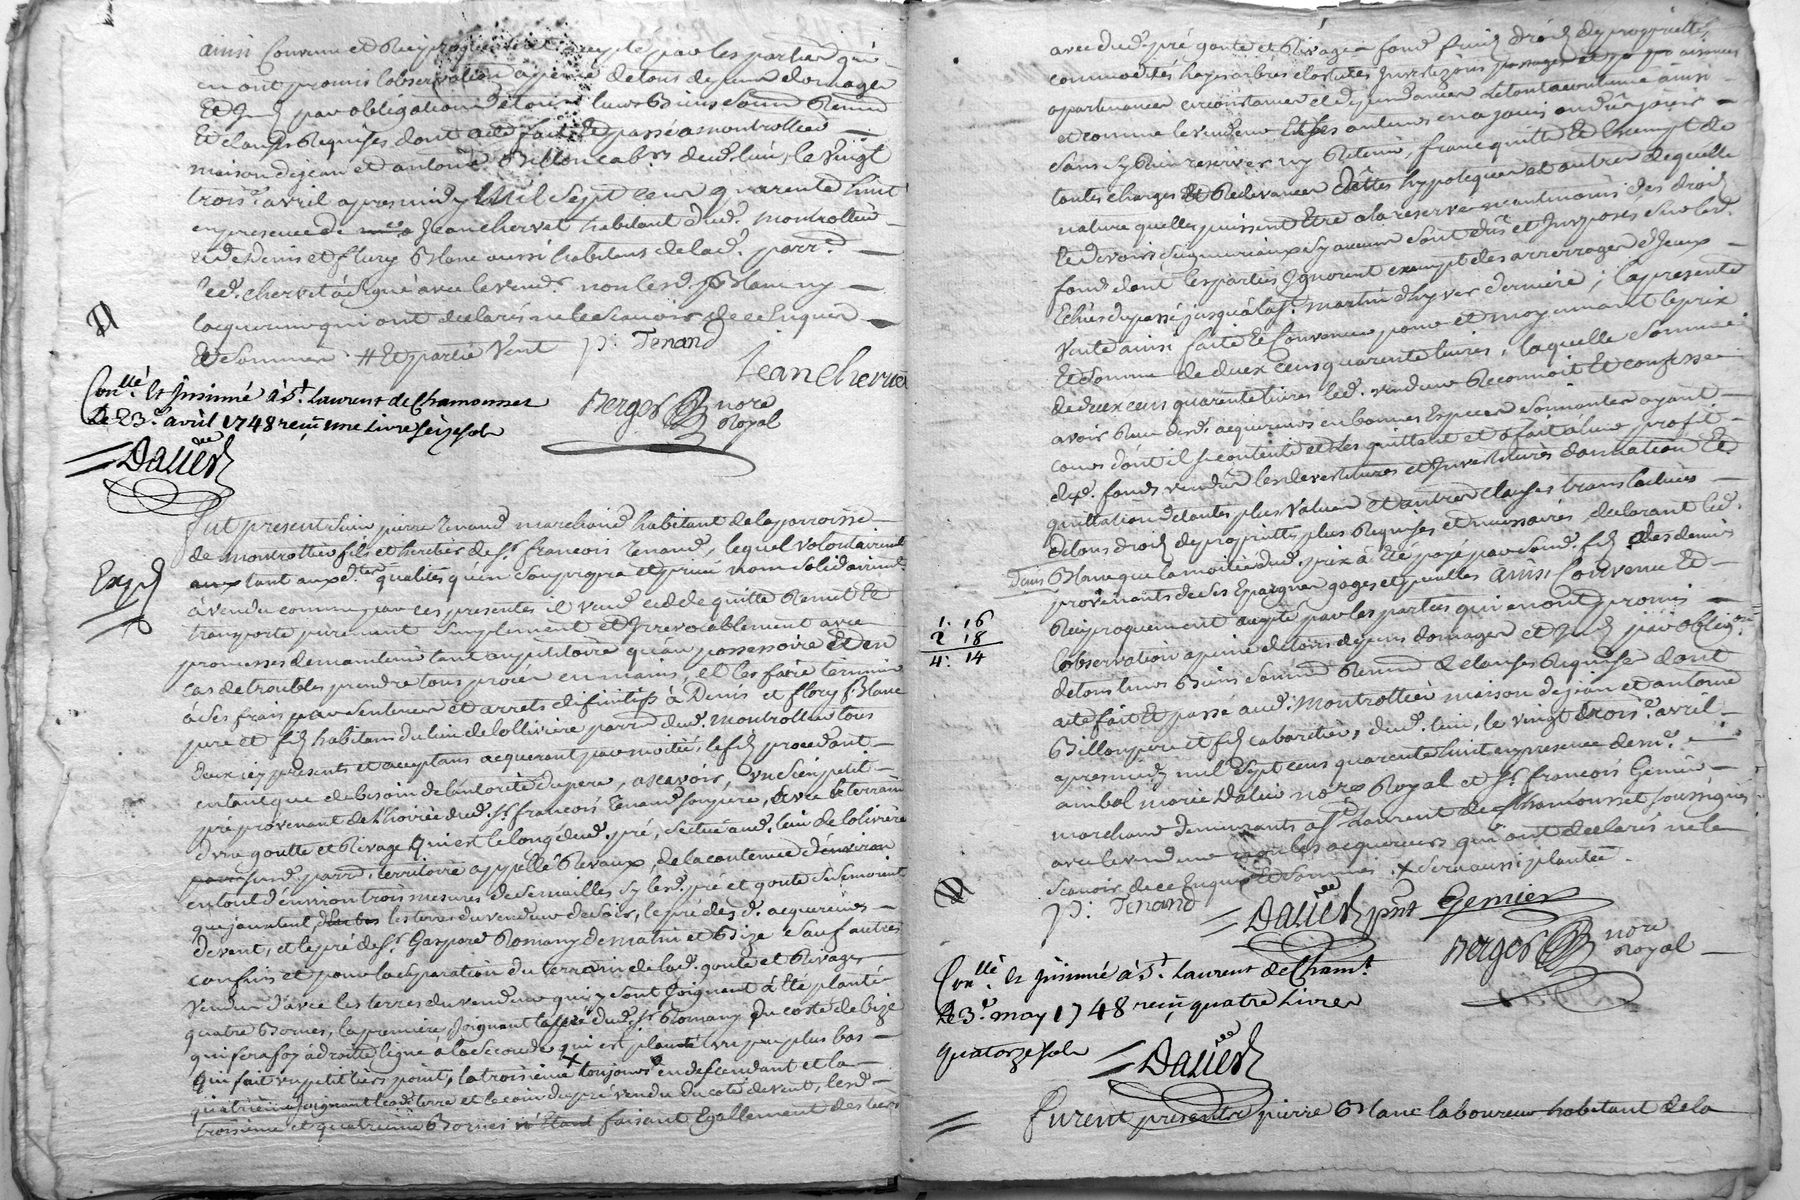 ainsi Convenu et Reciproquement accepté par les parties qui
en ont promis l'observation a peine de tous depens domages
Et par obligation de tous leurs Biens Soumis Renon
Et clauses Requises dont acte fait Et passé a montrottier
maison de jean et antoine Billon cab.rs dud. lieu, le vingt
trois.e avril apres midy Mil Sept cens quarente huit
en presence de Jean chervet habitant dud. Montrottier
et de Denis et flury Blanc aussi habitans de lad. parr.e
led. chervet a signé avec le vend.r non lesd. Blanc ny
lacquereur qui ont declarés ne le scavoir de ce Enquis
Et Sommés # Et partie Vent p: Tenand
Jean Chervet
Con.llé Et Insinué à S.t Laurent de Chamousset
Le 23.e avril 1748 reçû une Livre Seize sols
Berger no.re Royal
= Dalier
Fut present Sieur pierre Tenand marchand habitant de la parroisse
de montrottier fils et heritier de S.r francois Tenand, lequel volontairement
Exp.d
tant aux d.tes qualités qu'en son propre et privé nom solidairement
à vendu comme par ces presentes il vend cedde quitte Remet Et
transporte purement Simplement et Irrevocablement avec
promesses de maintenir tant au petitoire qu'au possessoire Et en
cas de troubles prendre tous procès en mains, et les faire terminer
à Ses frais par Sentences et arrets difinitifs à Denis et flory Blanc
pere et fils habitans du lieu de lollivière parr.e dud. Montrottier tous
deux icy presents et aceptans acquerant par moitié, le fils procedant
entant que de besoin de l'authorité du pere, ascavoir, un Sien petit
pré provenant de l'hoirie dud. S.r francois Tenand Son pere, avec le terrain
d'une goutte et Rivage qui est le long dud. pré, Scitué aud. lieu de lolivière
susd. parr.e territoire appellé Rivaux, de la contenue d'environ
en tout d'environ trois mesures de Semailles, Sy lesd. pré et goute se Semoient
que jouxtent les terres du vendeur de Soir, le pré des d. acquereurs
de vent, et le pré de S.r Gaspard Romany de matin et Bize Sauf autres
confins et pour la separation du terrain de lad. goute et Rivage
Vendu d'avec les terres du vendeur qui y sont Joignant à été planté
quatre Bornes, la premiere, Joignant la terre dud. S.r Romany du costé de bize
qui fera foy à droite ligne à la Seconde qui est plantée un peu plus bas
qui fait un petit tiers point, la troisieme x toujours en descendant et la
quatrieme Joignant lesd. terre et le coin du pré vendu du coté de vent, lesd.
troisieme et quatrieme Bornes faisant Egallement des tiers
avec dud. pré goute et Rivage fond fruits droits de proprietté
commodités hayes arbres clostures Investizons passages et aisances
apartenances circonstances et dependances Le tout acoutumé ainsi
et comme le vendeur Et Ses auteurs en a joui ou du jouir
Sans y Rien reserver ny Retenir, franc quitte Et Exempt de
toutes charges Et Redevances dêttes hypoteques et autres de quelle
nature quelles puissent Etre a la reserve neantmoins des droits
Et devoirs Seigneuriaux Sy aucuns Sont dûs et Imposés Sur led.
fond dont les parties Ignorent exempt des arrerages d'Iceux
Echus du passé jusqu'à la S.t martin d'hyver derniere; la presente
Vente ainsi faite Et Convenue pour et moyennant le prix
Et Somme de deux cens quarente livres, laquelle Somme
de deux cens quarente livres led. vendeur Reconnoit Et confesse
avoir Reçu desd. acquereurs en bonnes Especes Sonnantes ayant
cours dont il Se contente et Les quittent et a fait à leur profit
dud. fond vendu les devestitures et Investitures donnation Et
quittation de toutes plus values et autres clauses translatives
de tous droits de proprietté plus Requises et necessaires, declarant led.
Denis
Blanc que la moitié dud. prix à Eté payé par Son d. fils des deniers
provenants de Ses Epargnes gages et peculles Ainsi Convenu Et
1. 16
2 18
4. 14
Reciproquement accepté par les parties qui en ont promis
l'observation a peine de tous depens domages et par oblig.on
de tous leurs Biens Soumis Renon & clauses Requises dont
acte fait Et passé aud. Montrottier maison de jean et antoine
Billon pere et fils cabaretiers, dud. lieu, le vingt trois.e avril
apres midy mil Sept cens quarente huit en presence de m.e
aimbal marie Dalier no.re Royal et S.r francois Genier
marchand demeurants a S.t Laurent de Chamousset Soussignés
avec le vendeur non les acquereurs qui ont declarés ne le
Scavoir de ce Enquis Et Sommés. x Sera aussi plantée.
p: Tenand = Dalier p.nt Genier
Berger no.re Royal
Con.llé Et Insinué à S.t Laurent de Cham.t
Le 3.e may 1748 reçû quatre Livres
quatorze sols = Dalier
= Furent presents pierre Blanc laboureur habitant de la